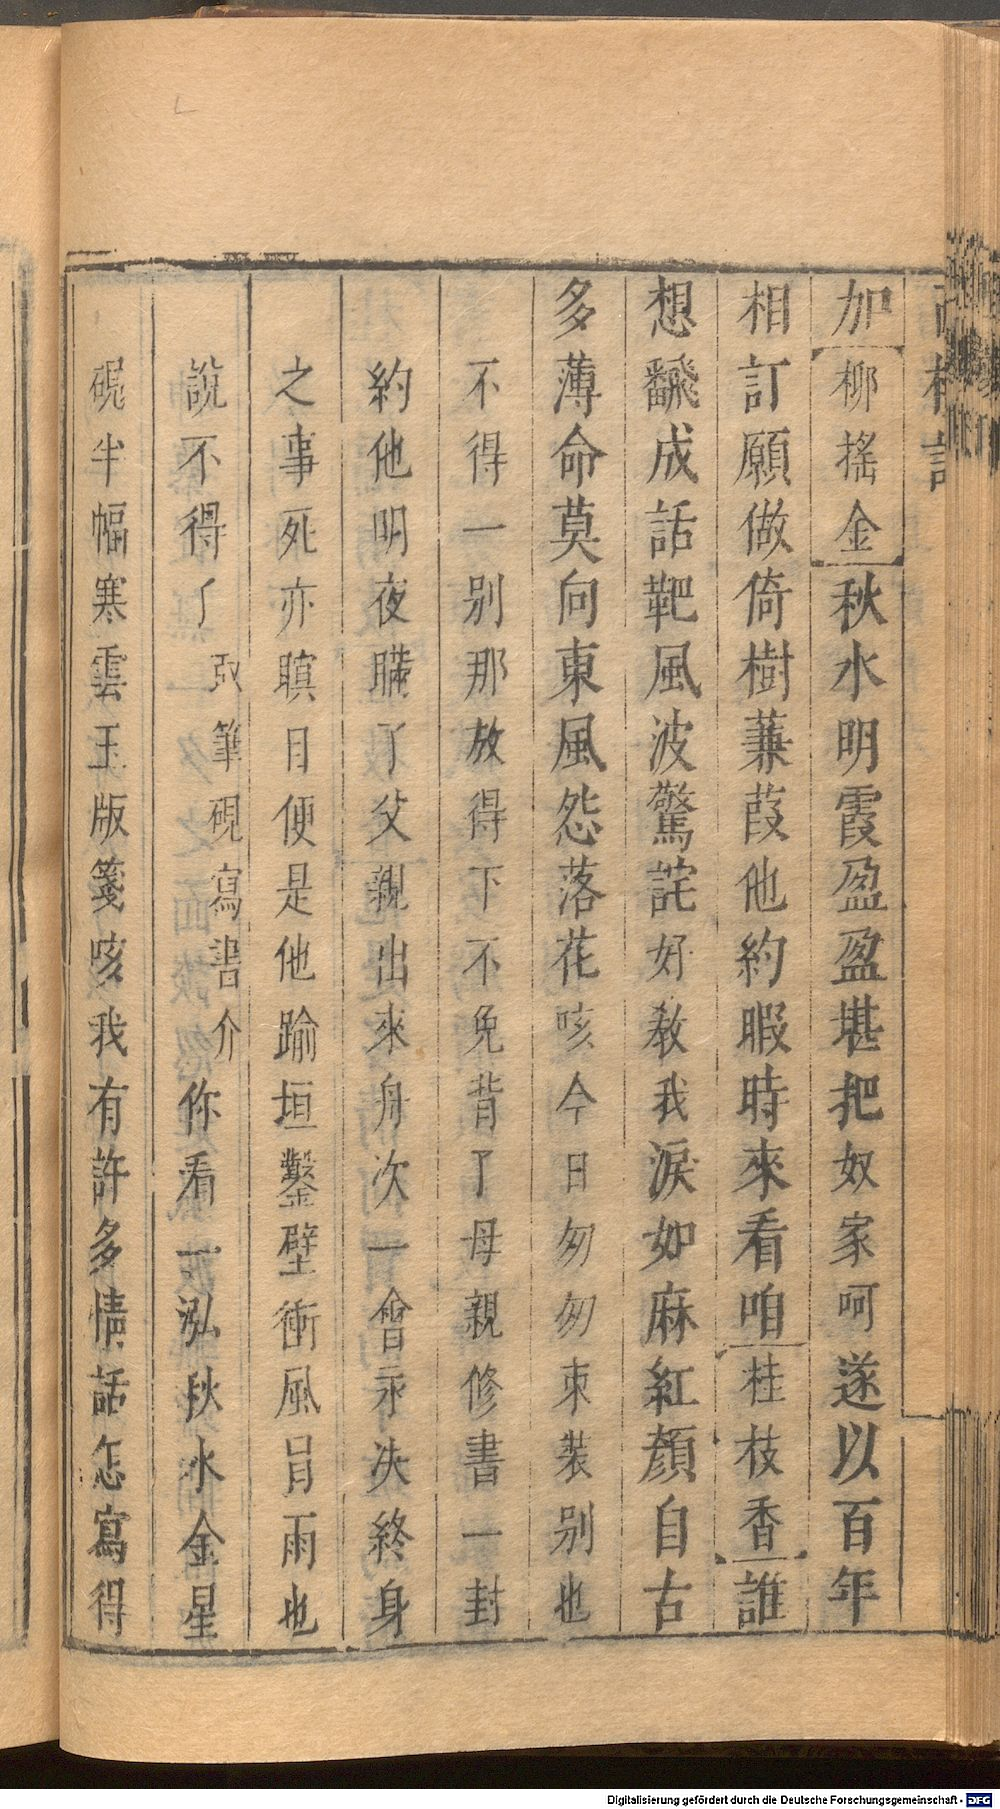 加柳搖金秋水明霞盈盈堪把奴家呵遂以百年
相訂願做倚樹蒹葭他約暇時來看咱桂枝香誰
想飜成話靶風波驚詫好教我淚如麻紅顏自古
多薄命莫向東風怨落花咳今日匆匆束裝别也
不得一别那放得下不免背了母親修書一封
約他明夜瞞了父親出來舟次一會永决終身
之事死亦瞑目便是他踰垣鑿壁衝風冐雨也
說不得了取筆硯寫書介你看一泓秋水金星
硯半幅寒雲玉版箋咳我有許多情話怎寫得
Digitalisierung gefördert durch die Deutsche Forschungsgemeinschaft - DFG